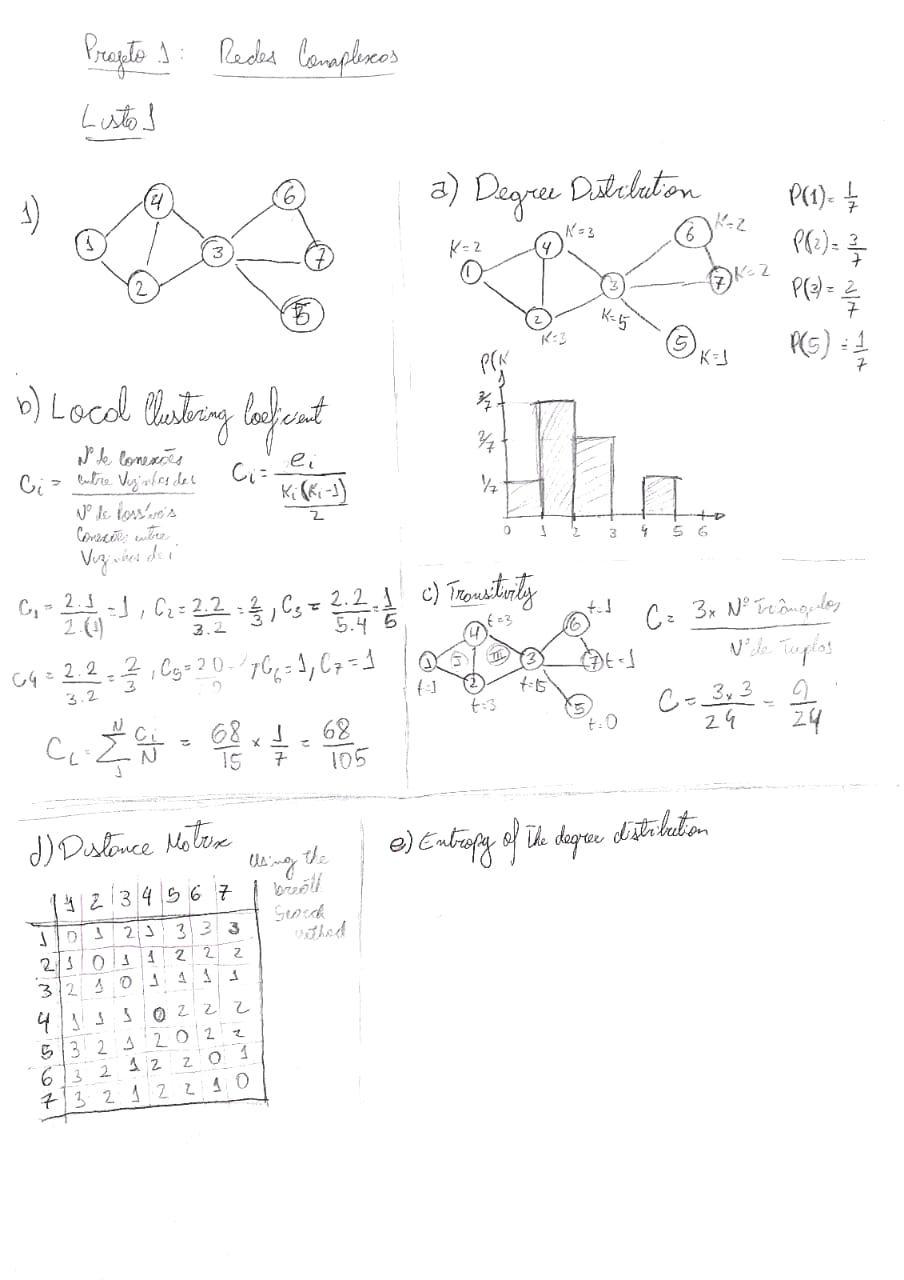 Projeto 1: Redes Conaplexos
Lista 1
1)
4
6
1
3
7
2
5
a) Degree Distribution
P(1)= 1/7
P(2)= 3/7
P(3)= 2/7
P(5) = 1/7
K=2
K=3
K=2
1
4
6
3
7
K=2
2
K=5
K=3
5
K=1
P(K
3/7
2/7
1/7
0 1 2 3 4 5 6
b) Local Clustering Coeficient
Ci = Nº de Conexões entre Vizinhos de i / Nº de Possíveis Conexões entre Vizinhos de i
Ci = ei / (Ki(Ki-1)/2)
C1 = 2.1/2.(1) = 1, C2 = 2.2/3.2 = 2/3, C3 = 2.2/5.4 = 1/5
C4 = 2.2/3.2 = 2/3, C5 = 2 0, C6 = 1, C7 = 1
CL = Σ Ci/N = 68/15 x 1/7 = 68/105
N
1
c) Transitivity
t=3
t=1
4
6
1
I
III
3
7
t=1
t=1
2
t=15
t=3
5
t=0
C = 3x Nº Triângulos / Nº de Tuplos
C = 3x3/24 = 9/24
d) Distance Motrix
Using the
breath
Search
method
1 2 3 4 5 6 7
1 0 1 2 1 3 3 3
2 1 0 1 1 2 2 2
3 2 1 0 1 1 1 1
4 1 1 1 0 2 2 2
5 3 2 1 2 0 2 2
6 3 2 1 2 2 0 1
7 3 2 1 2 2 1 0
e) Entropy of The degree distribution